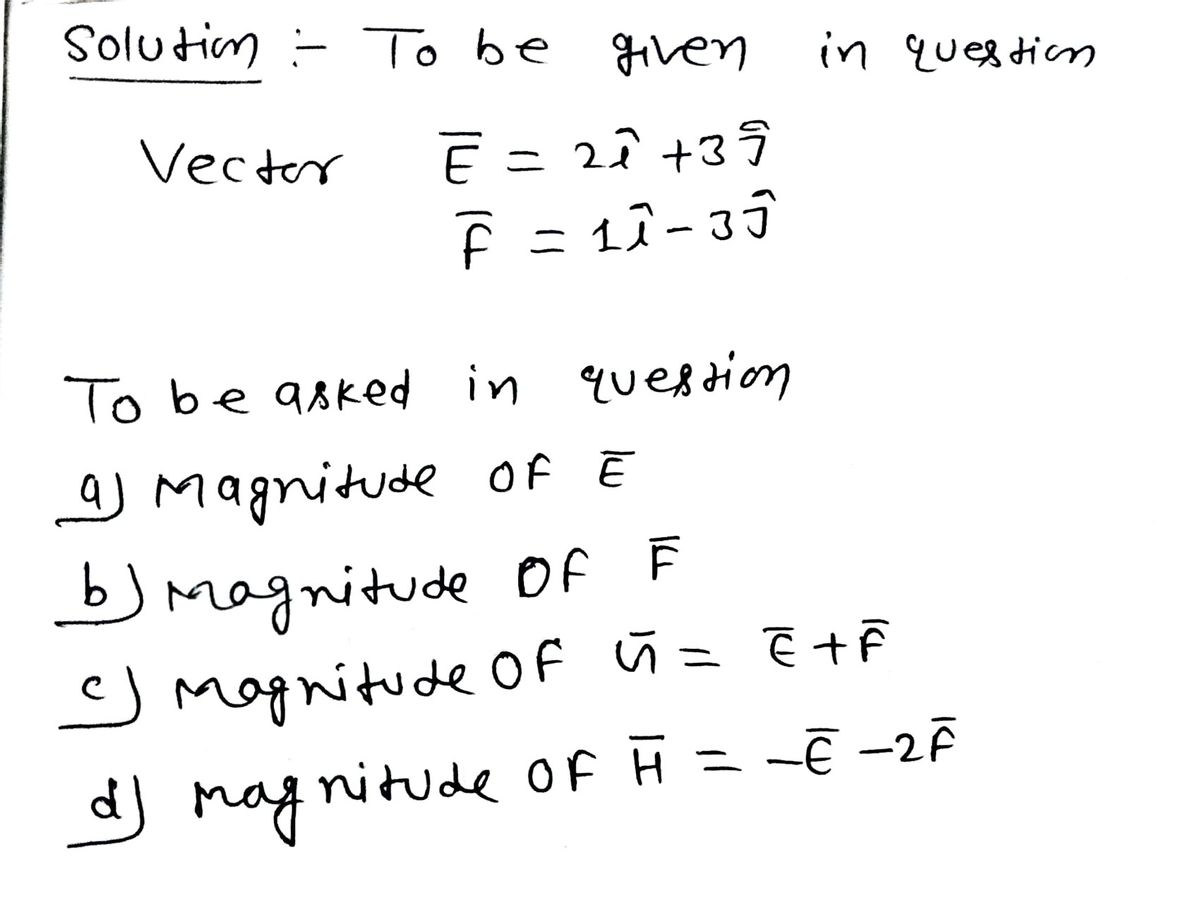 Solution :- To be given in question
Vector E̅ = 2î + 3ĵ
F̅ = 1î - 3ĵ
To be asked in question
a) Magnitude of E̅
b) Magnitude of F̅
c) Magnitude of G̅ = E̅ + F̅
d) magnitude of H̅ = -E̅ - 2F̅